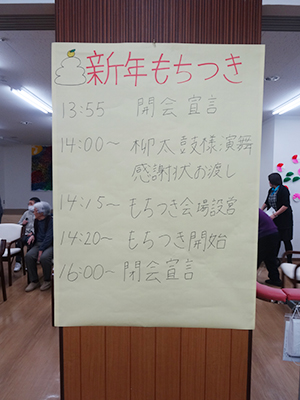 新年もちつき
13:55 開会宣言
14:00～ 柳太鼓様演舞
感謝状お渡し
14:15～ もちつき会場設営
14:20～ もちつき開始
16:00～ 閉会宣言